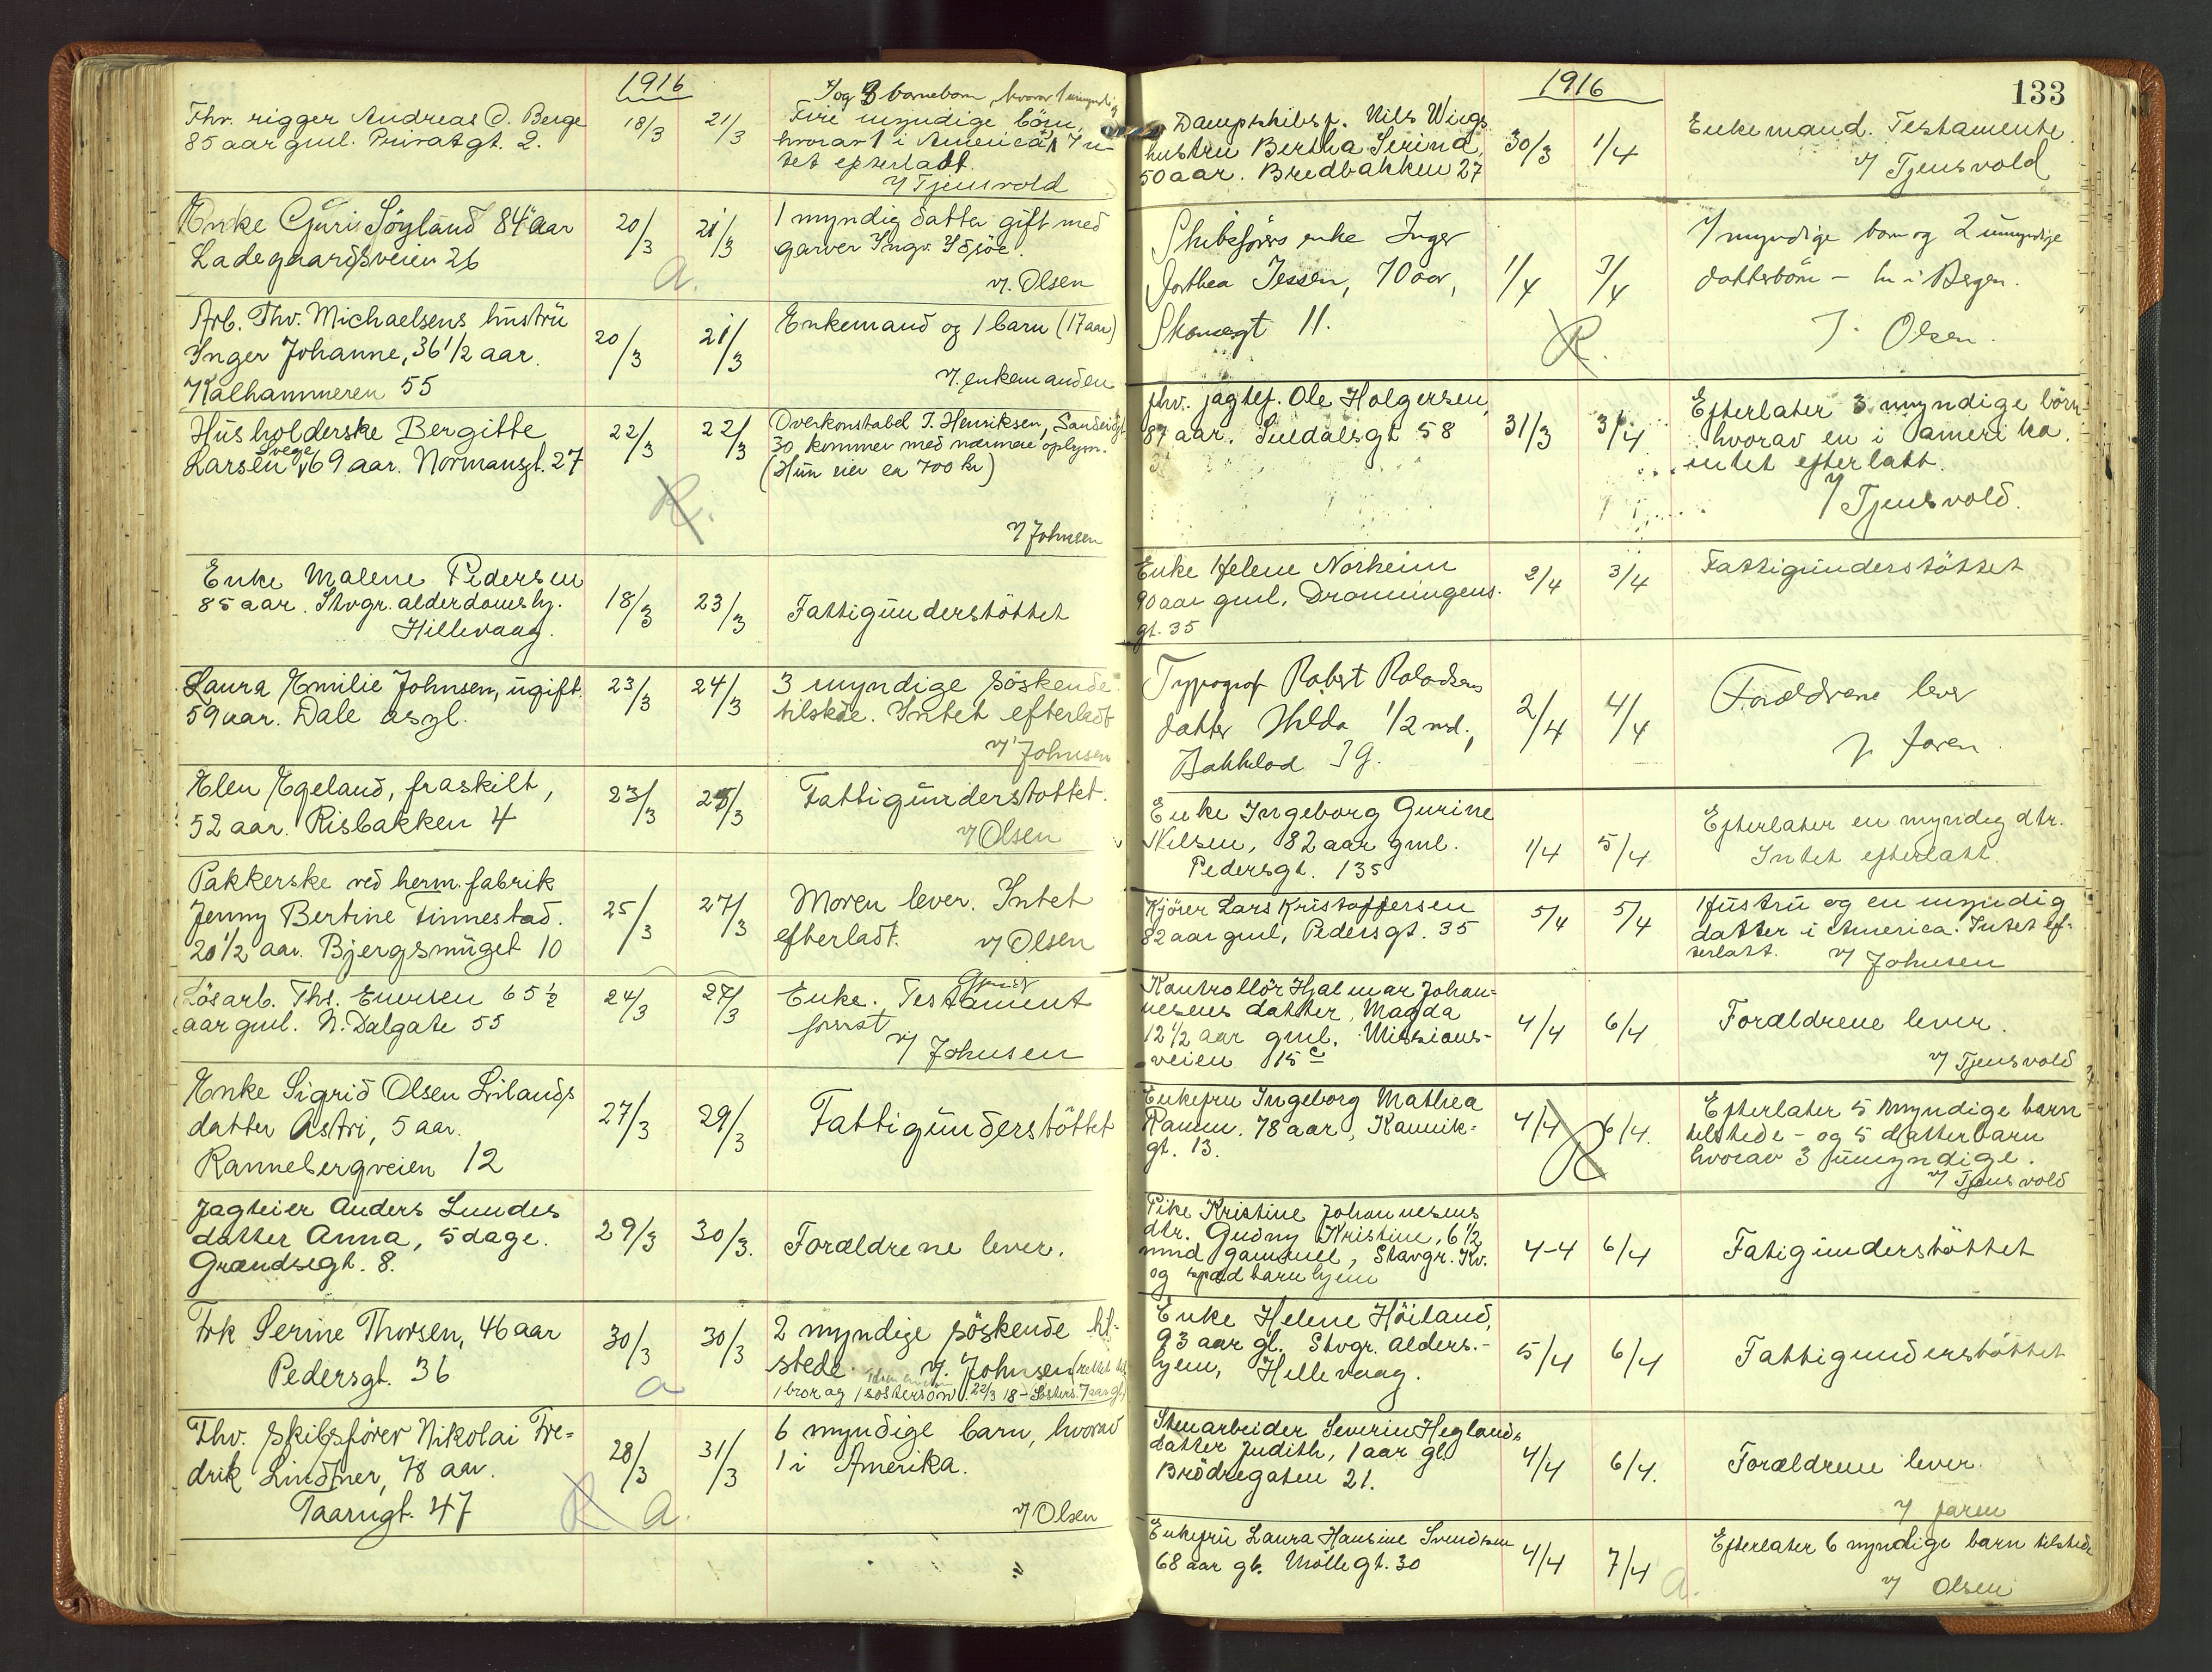 1916
Fhv. rigger Andreas O. Berge
85 aar gml. Privatgt. 2.
18/3
21/3
og 3 barnebarn, hvorav 1 umyndig
Fire myndige börn,
hvorav 1 i America. In-
tet efterladt.
v/ Tjensvold
Enke Guri Söyland 84 aar
Ladegaardsveien 26
20/3
21/3
a.
1 myndig datter gift med
garver Ingv. Idsöe.
v. Olsen
Arb. Thv. Michaelsens hustru
Inger Johanne, 36 1/2 aar.
Kalhammeren 55
20/3
21/3
Enkemand og 1 barn (17 aar)
v. enkemanden
Husholderske Bergitte
Larsen vege 69 aar. Normansgt. 27
22/3
22/3
R.
Overkonstabel T. Henriksen, Sandvigt.
30 kommer med nærmere oplysn.
(Hun eier ca 700 kr)
v/ Johnsen
Enke Malene Pedersen
85 aar. Stvgr. alderdomshj.
Hillevaag.
18/3
23/3
Fattigunderstöttet
Laura Emilie Johnsen, ugift.
59 aar. Dale asyl.
23/3
24/3
3 myndige söskende
tilstede. Intet efterladt
v/ Johnsen
Elen Egeland, fraskilt,
52 aar. Risbakken 4
23/3
25/3
Fattigunderstottet.
v/ Olsen
Pakkerske ved herm. fabrik
Jenny Bertine Tinnestad.
20 1/2 aar. Bjergsmuget 10
25/3
27/3
Moren lever. Intet
efterladt.
v/ Olsen
Lösarb. Ths. Enersen 65 1/2
aar gml. N. Dalgate 55
24/3
27/3
Enke. Testament
v/ Johnsen
Enke Sigrid Olsen Lilands
datter Astri, 5 aar.
Rannebergveien 12
27/3
29/3
Fattigunderstöttet
Jagteier Anders Lundes
datter Anna, 5 dage.
Grændsegt. 8.
29/3
30/3.
Forældrene lever.
Frk Serine Thorsen, 46 aar
Pedersgt. 36
30/3
30/3
a
2 myndige söskende til-
stede. v. Johnsen (rettet til
1 bror og 1 söstersön 22/3 18 - Sösters. 7 aar gl.)
Fhv. skibsförer Nikolai Fre-
drik Lindtner, 78 aar.
Taarngt. 47
28/3
31/3
R a.
6 myndige barn, hvorav
1 i Amerika.
v/ Olsen
1916
133
Dampskibsf. Nils Wiigs
hustru Bertha Serina,
50 aar. Bredbakken 27
30/3
1/4
Enkemand. Testamente
v/ Tjensvold
Skibsförers enke Inger
Dorthea Jessen, 70 aar,
Skanegt 11.
1/4
3/4
R.
7 myndige barn og 2 umyndige
datterbörn - i Bergen.
v. Olsen.
fhv. jagtef. Ole Holgersen,
87 aar. Suldalsgt 58
31/3
3/4
Efterlater 3 myndige börn
hvorav en i amerika.
intet efterlatt.
v/ Tjensvold.
Enke Helene Norheim
90 aar gml, Dronningens.
gt. 35
2/4
3/4
Fattigunderstöttet
Typograf Robert Rolodsens
datter Hilda 1/2 md.,
Bakkelad 39.
2/4
4/4
Forældrene lever
v Jaren
Enke Ingeborg Gurine
Nilsen, 82 aar gml.
Pedersgt. 135
1/4
5/4
Efterlater en myndig dtr.
Intet efterlatt.
Kjörer Lars Kristoffersen
82 aar gml, Pedersgt. 35
5/4
5/4
Hustru og en myndig
datter i America. Intet ef-
terlatt. v/ Johnsen
Kontrollör Hjalmar Johan-
nesens datter, Magda
12 1/2 aar gml. Missions-
veien 15 c
4/4
6/4
Forældrene lever.
v/ Tjensvold
Enkefru Ingeborg Mathea
Ramm. 78 aar, Kannik-
gt. 13.
4/4
6/4.
R
Efterlater 5 myndige barn
tilstede - og 5 datterbarn
hvorav 3 umyndige.
v/ Tjensvold
Pike Kristine Johannesens
dtr. Gudny Kristine, 6 1/2
mnd gammel, Stavgr. Kv.
og spædbarnhjem
4-4
6/4
Fatigunderstöttet
Enke Helene Höiland,
93 aar gl. Stvgr. alders.-
hjem, Hillevaag.
5/4
6/4
Fattigunderstöttet
Stenarbeider Severin Heglands
datter Judith, 1 aar gl.
Brödregaten 21.
4/4
6/4.
Forældrene lever.
v Jaren
Enkefru Laura Hansine Svendsen
68 aar gl. Möllegt. 30
4/4
7/4
a.
Efterlater 6 myndige barn tilstede
v/ Olsen